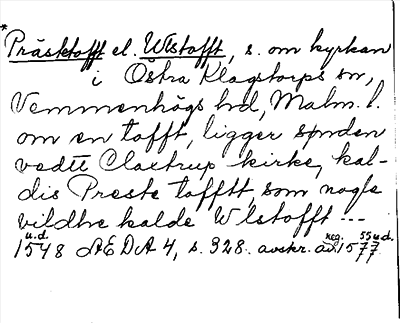 * Präsktofft el. Wlstofft, s. om kyrkan
i Östra Klagstorps sn,
Vemmenhögs hd, Malm. l.
om en tofft, ligger synden
vedtt Claxtrup kirke, kal-
dis Preste tofftt, som nogle
vildhe kalde Wlstofft ...
u.d. reg. 55 u.d.
1548 AEDA 4, s. 328. avskr. av 1577